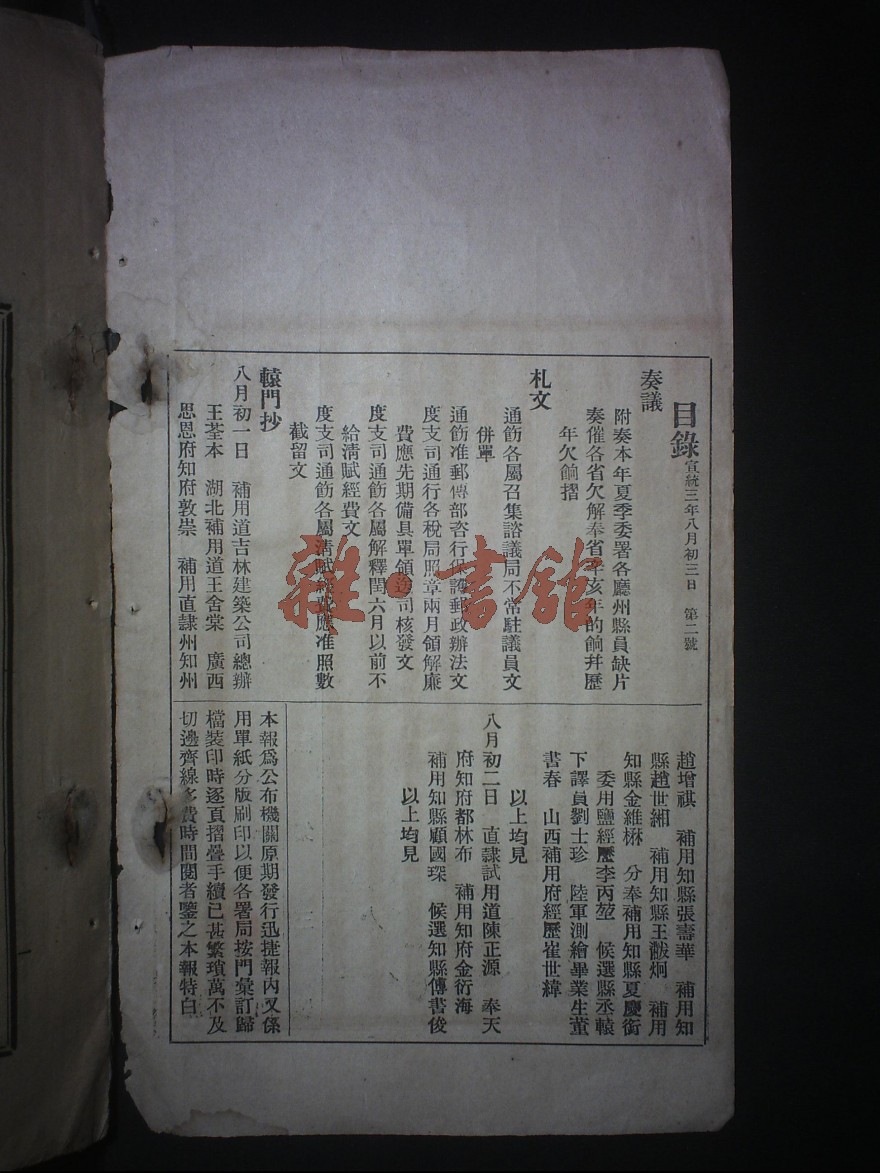 目錄 宣統三年八月初三日 第二號
奏議
附奏本年夏季委署各廳州縣員缺片
奏催各省欠解奉省辛亥年的餉幷歷
年欠餉摺
札文
通飭各屬召集諮議局不常駐議員文
併單
通飭准郵傳部咨行保護郵政辦法文
度支司通行各稅局照章兩月領解廉
費應先期備具單領送司核發文
度支司通飭各屬解釋閏六月以前不
給淸賦經費文
度支司通飭各屬淸賦經費應准照數
截留文
轅門抄
八月初一日 補用道吉林建築公司總辦
王荃本 湖北補用道王舍棠 廣西
思恩府知府敦崇 補用直隸州知州
趙增祺 補用知縣張壽華 補用知
縣趙世緗 補用知縣王黻炯 補用
知縣金維楙 分奉補用知縣夏慶銜
委用鹽經歷李丙堃 候選縣丞轅
下譯員劉士珍 陸軍測繪畢業生董
書春 山西補用府經歷崔世緯
以上均見
八月初二日 直隸試用道陳正源 奉天
府知府都林布 補用知府金衍海
補用知縣顧國琛 候選知縣傅書俊
以上均見
本報爲公布機關原期發行迅捷報內又係
用單紙分版刷印以便各署局按門彙訂歸
檔裝印時逐頁摺疊手續已甚繁瑣萬不及
切邊齊線多費時間閱者鑒之本報特白
雜·書館